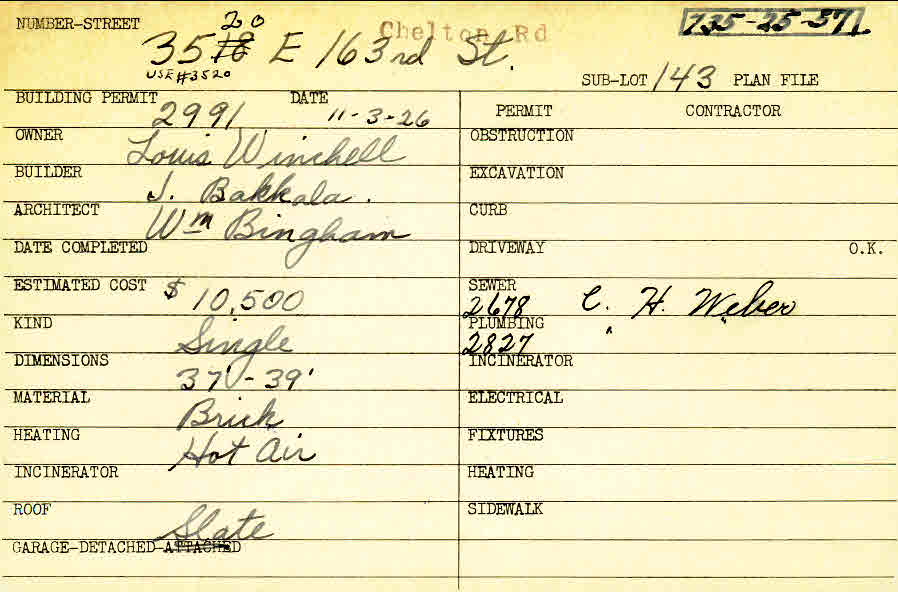 NUMBER-STREET 3518 20 E 163rd St. Chelton Rd 735-25-37
USE #3520
SUB-LOT 143 PLAN FILE
BUILDING PERMIT 2991 DATE 11-3-26
OWNER Louis Winchell
BUILDER J. Bakkala.
ARCHITECT Wm Bingham
DATE COMPLETED
ESTIMATED COST $ 10,500
KIND Single
DIMENSIONS 37' - 39'
MATERIAL Brick
HEATING Hot Air
INCINERATOR
ROOF Slate
GARAGE-DETACHED-ATTACHED
PERMIT CONTRACTOR
OBSTRUCTION
EXCAVATION
CURB
DRIVEWAY O.K.
SEWER 2678 C. H. Weber
PLUMBING 2827 " "
INCINERATOR
ELECTRICAL
FIXTURES
HEATING
SIDEWALK